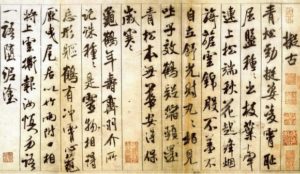 擬古
青松勁挺姿凌霄恥
屈盤種種出枝葉牽
連上松端秋花起絳煙
旖旎雲錦殷不羞不
自立舒光射丸丸柏見
吐子效鶴疑縮頸還
青松本無華安得保
歲寒
龜鶴年壽齊羽介所
託殊種種是靈物相得
忘形軀鶴有沖霄心龜
厭曳尾居以竹兩附口相
將上雲衢報汝慎勿語
一語墮泥塗